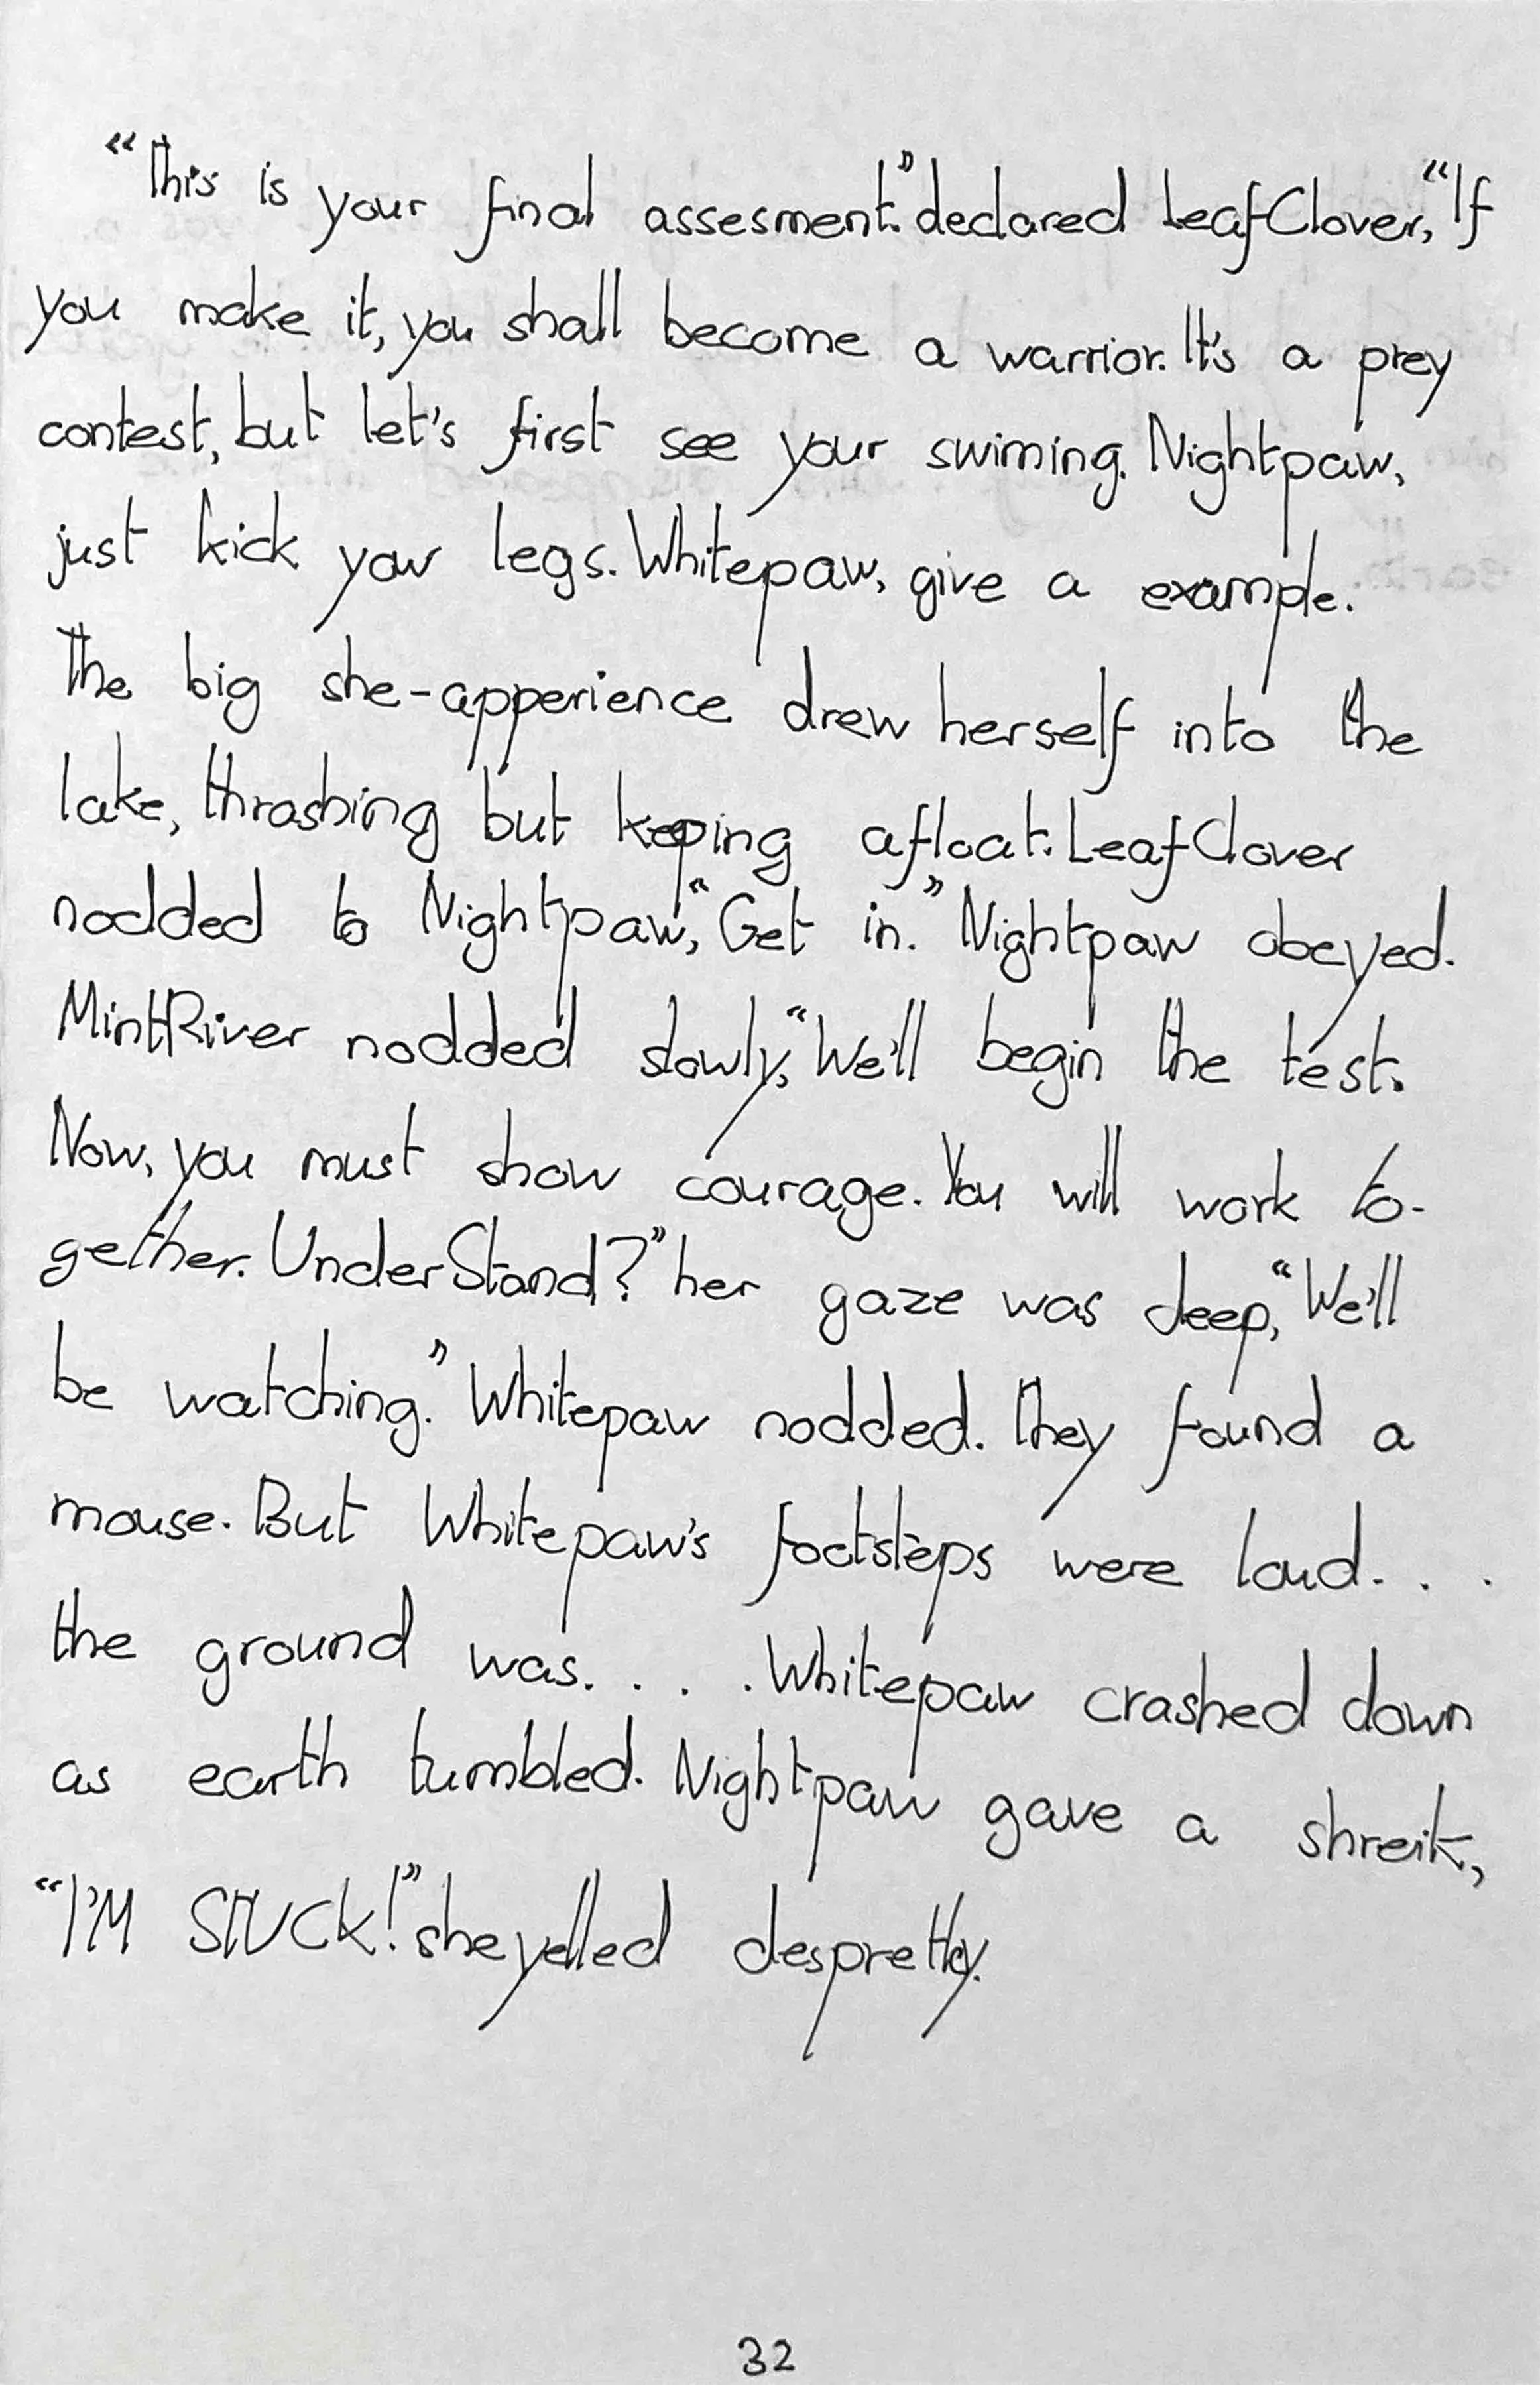 “This is your final assesment.” declared LeafClover, “If
you make it, you shall become a warrior. It's a prey
contest, but let's first see your swiming. Nightpaw,
just kick your legs. Whitepaw, give a example.
The big she-apperience drew herself into the
lake, thrashing but keeping afloat. LeafClover
nodded to Nightpaw, “Get in.” Nightpaw obeyed.
MintRiver nodded slowly, “We'll begin the test.
Now, you must show courage. You will work to-
gether. UnderStand?” her gaze was deep, “We'll
be watching.” Whitepaw nodded. They found a
mouse. But Whitepaw's footsteps were loud. . .
the ground was. . . . Whitepaw crashed down
as earth tumbled. Nightpaw gave a shreik,
“I'M STUCK!” she yelled despretly.
32